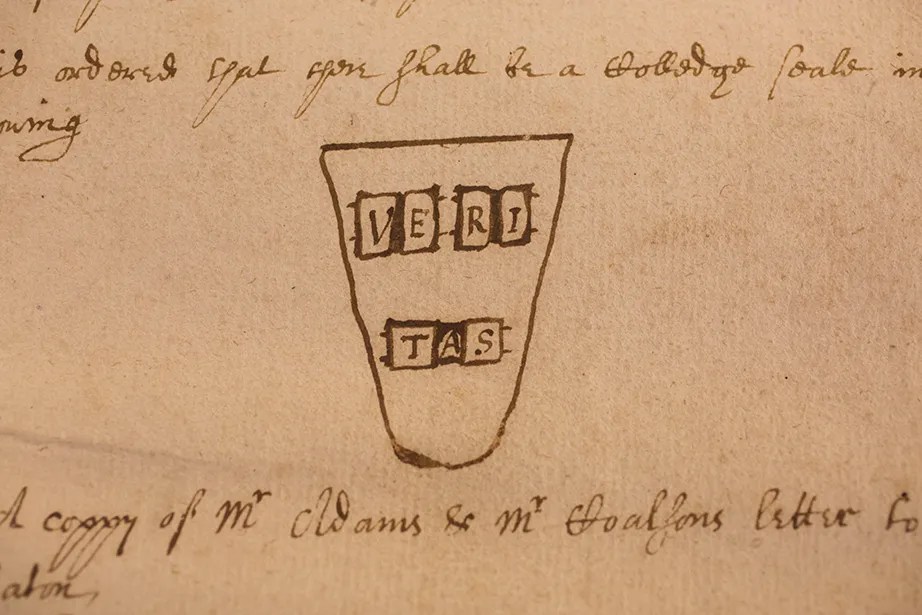 is ordered that there shall be a Colledge seale in
owing
VE RI
TAS
A coppy of Mr Adams & Mr letter to
aton,